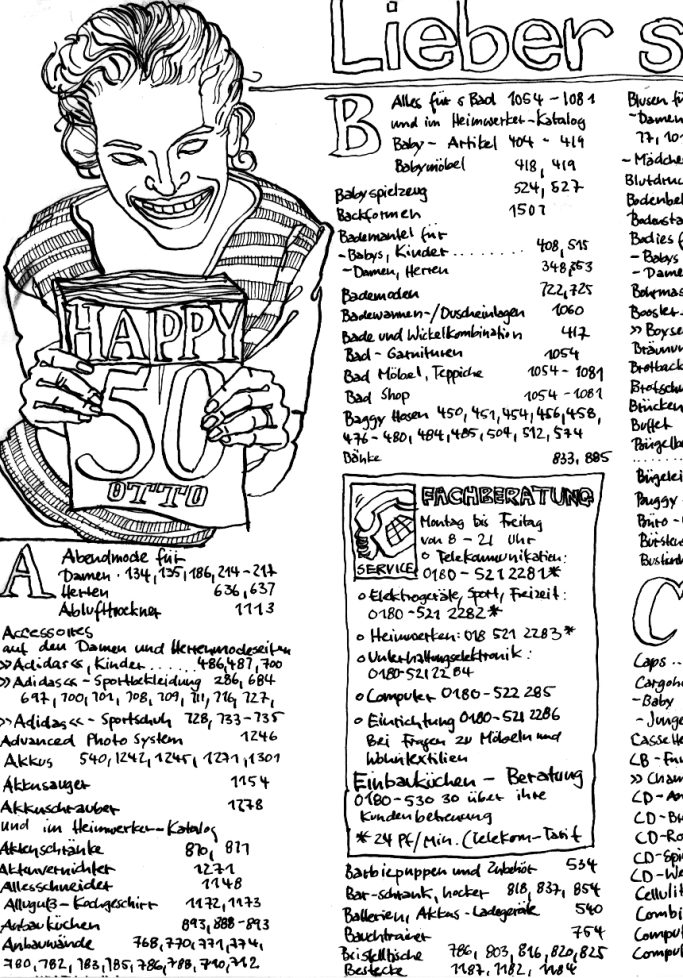 Lieber s
HAPPY
50
OTTO
A
Abendmode für
Damen . 134, 135, 186, 214-217
Herren 636, 637
Ablufttrockner 1113
Accessoires
auf den Damen und Herrenmodeseiten
»Adidas«, Kinder ...... 486, 487, 700
»Adidas« - Sportbekleidung 286, 684
697, 700, 701, 708, 709, 711, 716, 727,
»Adidas« - Sportschuh 728, 733-735
Advanced Photo System 1246
Akkus 540, 1242, 1245, 1271, 1301
Akkusauger 1154
Akkuschrauber 1278
und im Heimwerker-Katalog
Aktenschränke 870, 871
Aktenvernichter 1271
Allesschneider 1148
Alluguß-Kochgeschirr 1172, 1173
Anbauküchen 893, 888-893
Anbauwände 768, 770, 771, 774,
780, 782, 783, 785, 786, 788, 790, 792
B
Alles für s Bad 1054-1081
und im Heimwerker-Katalog
Baby-Artikel 404 - 419
Babymöbel 418, 419
Babyspielzeug 524, 527
Backformen 1507
Bademäntel für
-Babys, Kinder ........ 408, 515
-Damen, Herren 348,
Bademoden 722, 725
Badewannen-/Duscheinlagen 1060
Bade und Wickelkombination 417
Bad-Garnituren 1054
Bad Möbel, Teppiche 1054 - 1081
Bad Shop 1054 - 1081
Baggy Hosen 450, 451, 454, 456, 458,
476 - 480, 484, 485, 504, 512, 574
Bänke 833, 885
FACHBERATUNG
SERVICE
Montag bis Freitag
von 8 - 21 Uhr
o Telekommunikation:
0180 - 521 2281*
o Elektrogeräte, Sport, Freizeit:
0180 - 521 2282*
o Heimwerken: 018 521 2283*
o Unterhaltungselektronik:
0180-5212284
o Computer 0180-522 285
o Einrichtung 0180-521 2286
Bei Fragen zu Möbeln und
Wohntextilien
Einbauküchen - Beratung
0180-530 30 über ihre
Kundenbetreuung
* 24 Pf/Min. (Telekom-Tarif
Barbiepuppen und Zubehör 534
Bar-schrank, hocker 818, 837, 854
Batterien, Akkus-Ladegeräte 540
Bauchtrainer 754
Beistelltische 786, 803, 816, 820, 825
Bestecke 1187, 1182, 1181
Blusen fü
-Damen
77, 101
-Mädche
Blutdruc
Bodenbel
Bodensta
Bodies f
- Babys
- Dame
Bohrmas
Booster
» Boxse
Bräunun
Brotback
Brotschn
Brücken
Buffet
Bügelba
Bügelei
Buggy -
Büro -
Bürsten
Bustier
C
Caps ..
Cargoh
-Baby
- Junge
Cassette
CB-Fun
» Cham
CD-An
CD-Br
CD-Ro
CD-Spi
CD-We
Cellulit
Combi
Comput
Comput
Comput